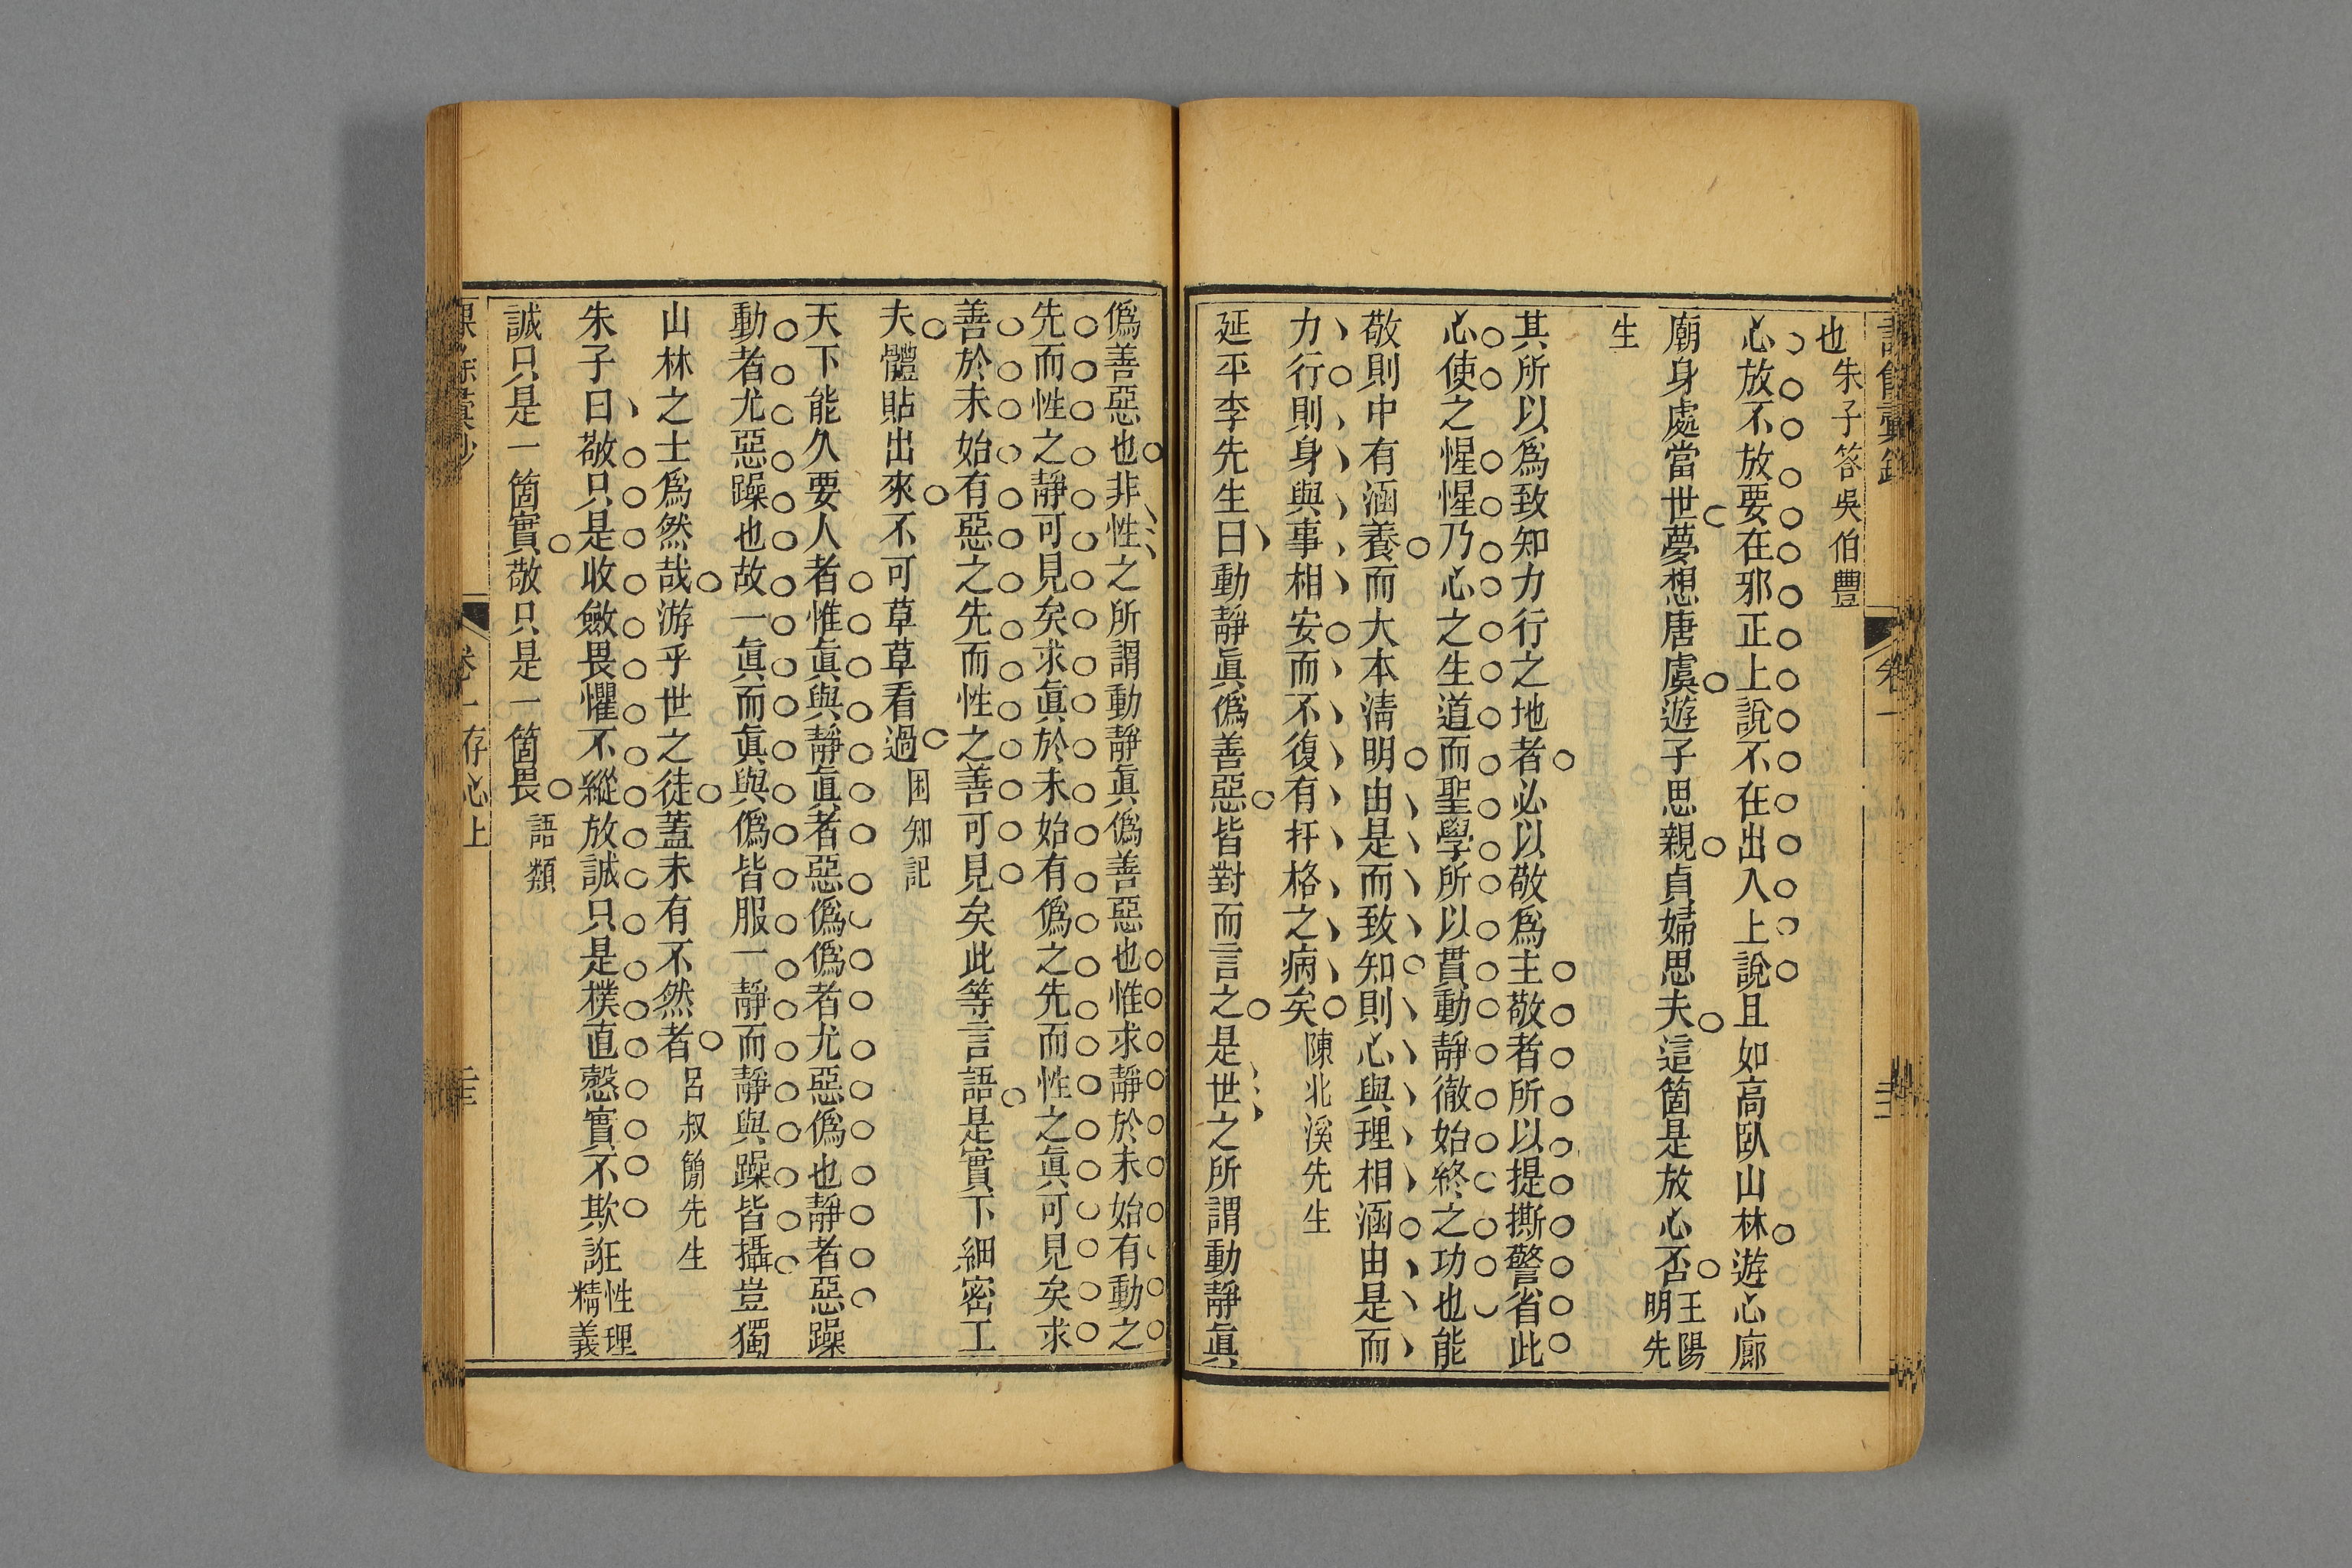 卷一
也朱子答吳伯豐
心放不放要在邪正上說不在出入上說且如高臥山林遊心廊
廟身處當世夢想唐虞遊子思親貞婦思夫這箇是放心否王陽明先
生
其所以爲致知力行之地者必以敬爲主敬者所以提撕警省此
心使之惺惺乃心之生道而聖學所以貫動靜徹始終之功也能
敬則中有涵養而大本清明由是而致知則心與理相涵由是而
力行則身與事相安而不復有扞格之病矣陳北溪先生
延平李先生曰動靜眞僞善惡皆對而言之是世之所謂動靜眞
僞善惡也非性之所謂動靜眞僞善惡也惟求靜於未始有動之
先而性之靜可見矣求眞於未始有僞之先而性之眞可見矣求
善於未始有惡之先而性之善可見矣此等言語是實下細密工
夫體貼出來不可草草看過困知記
天下能久要人者惟眞與靜眞者惡僞僞者尤惡僞也靜者惡躁
動者尤惡躁也故一眞而眞與僞皆服一靜而靜與躁皆攝豈獨
山林之士爲然哉游乎世之徒蓋未有不然者呂叔簡先生
朱子曰敬只是收斂畏懼不縱放誠只是樸直慤實不欺誑性理精義
誠只是一箇實敬只是一箇畏語類
卷一存心上